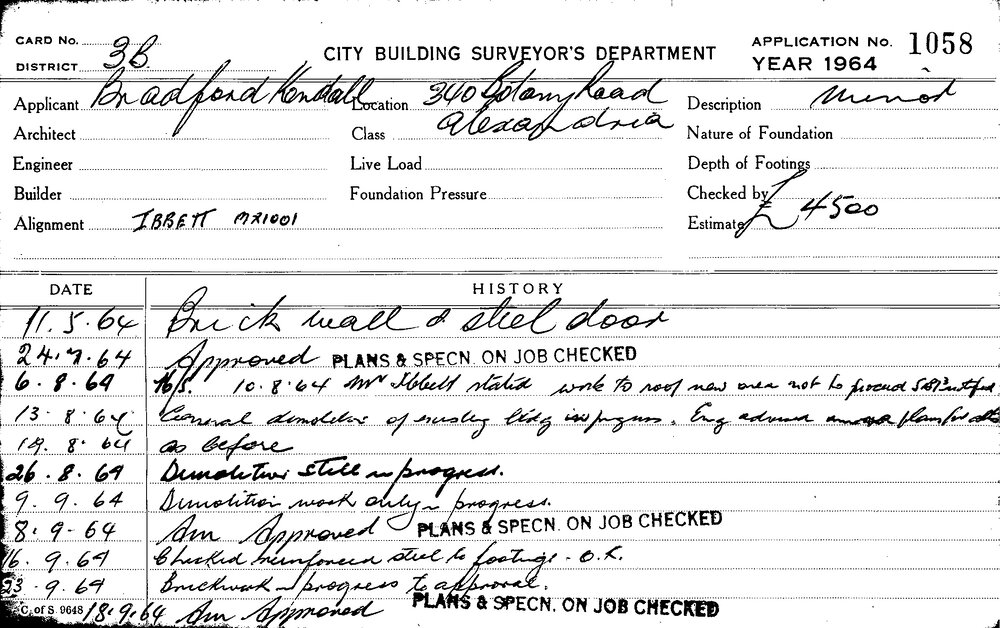 CARD No.
CITY BUILDING SURVEYOR'S DEPARTMENT
APPLICATION No. 1058
DISTRICT 3B
YEAR 1964
Applicant Bradford Kendall
Location 340 Botany Road
Alexandria
Description Minor
Architect
Class
Nature of Foundation
Engineer
Live Load
Depth of Footings
Builder
Foundation Pressure
Checked by
Alignment IBBETT MX1001
Estimate £4500
DATE HISTORY
11.5.64 Brick wall & steel door
24.7.64 Approved PLANS & SPECN. ON JOB CHECKED
6.8.64 N/S. 10.8.64 Mr Ibbett stated work to roof new area not to proceed
13.8.64 General demolition of existing bldg in progress. Eng advised
19.8.64 as before
26.8.64 Demolition still in progress.
9.9.64 Demolition work only in progress.
8.9.64 Am Approved PLANS & SPECN. ON JOB CHECKED
16.9.64 Checked reinforced steel to footings - O.K.
23.9.64 Brickwork in progress to approval.
C. of S. 9648 18.9.64 Am Approved PLANS & SPECN. ON JOB CHECKED